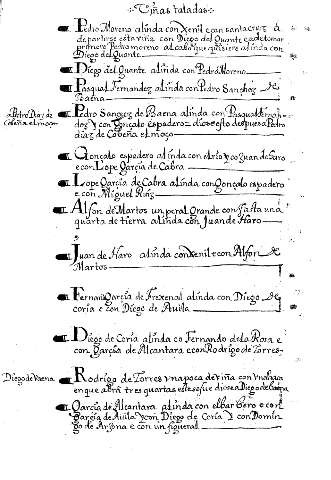 Viñas taladas
Pedro Moreno alinda con Xenil e con santa cruz a
de partirse esta viña con Diego del Quante e a de tomar
primero Pedro moreno al cabo que quisiere alinda con
Diego del Quante
Diego del Quante alinda con Pedro Moreno
Pasqual Fernandez alinda con Pedro Sanchez de
Baena
Pedro Diaz de
Cobeña el moço
Pedro Sanchez de Baena alinda con Pasqual Fernan-
dez Y con Gonçalo espadero diose esto despues a Pedro
diaz de Cobeña el moço
Gonçalo espadero alinda con el rio y con Juan de Faro
e con Lope Garcia de Cabra
Lope Garcia de Cabra alinda con Gonçalo espadero
e con Miguel Ruiz
Alfon de Martos un peral Grande con fasta una
quarta de tierra alinda con Juan de Haro
Juan de Haro alinda con Xenil e con Alfon de
Martos
Fernan Garcia de Frexenal alinda con Diego de
coria e con Diego de Avila
Diego de Coria alinda co Fernando de la Rosa e
con Garcia de Alcantara e con Rodrigo de Torres
Diego de Vaena
Rodrigo de Torres una poca de viña con una haça
en que abra tres quartas este se fue diose a Diego de Baena
Garcia de Alcantara alinda con el barbero e con
Garcia de Avila Y con Diego de Coria Y con Domin-
go de Arjona e con un figueral